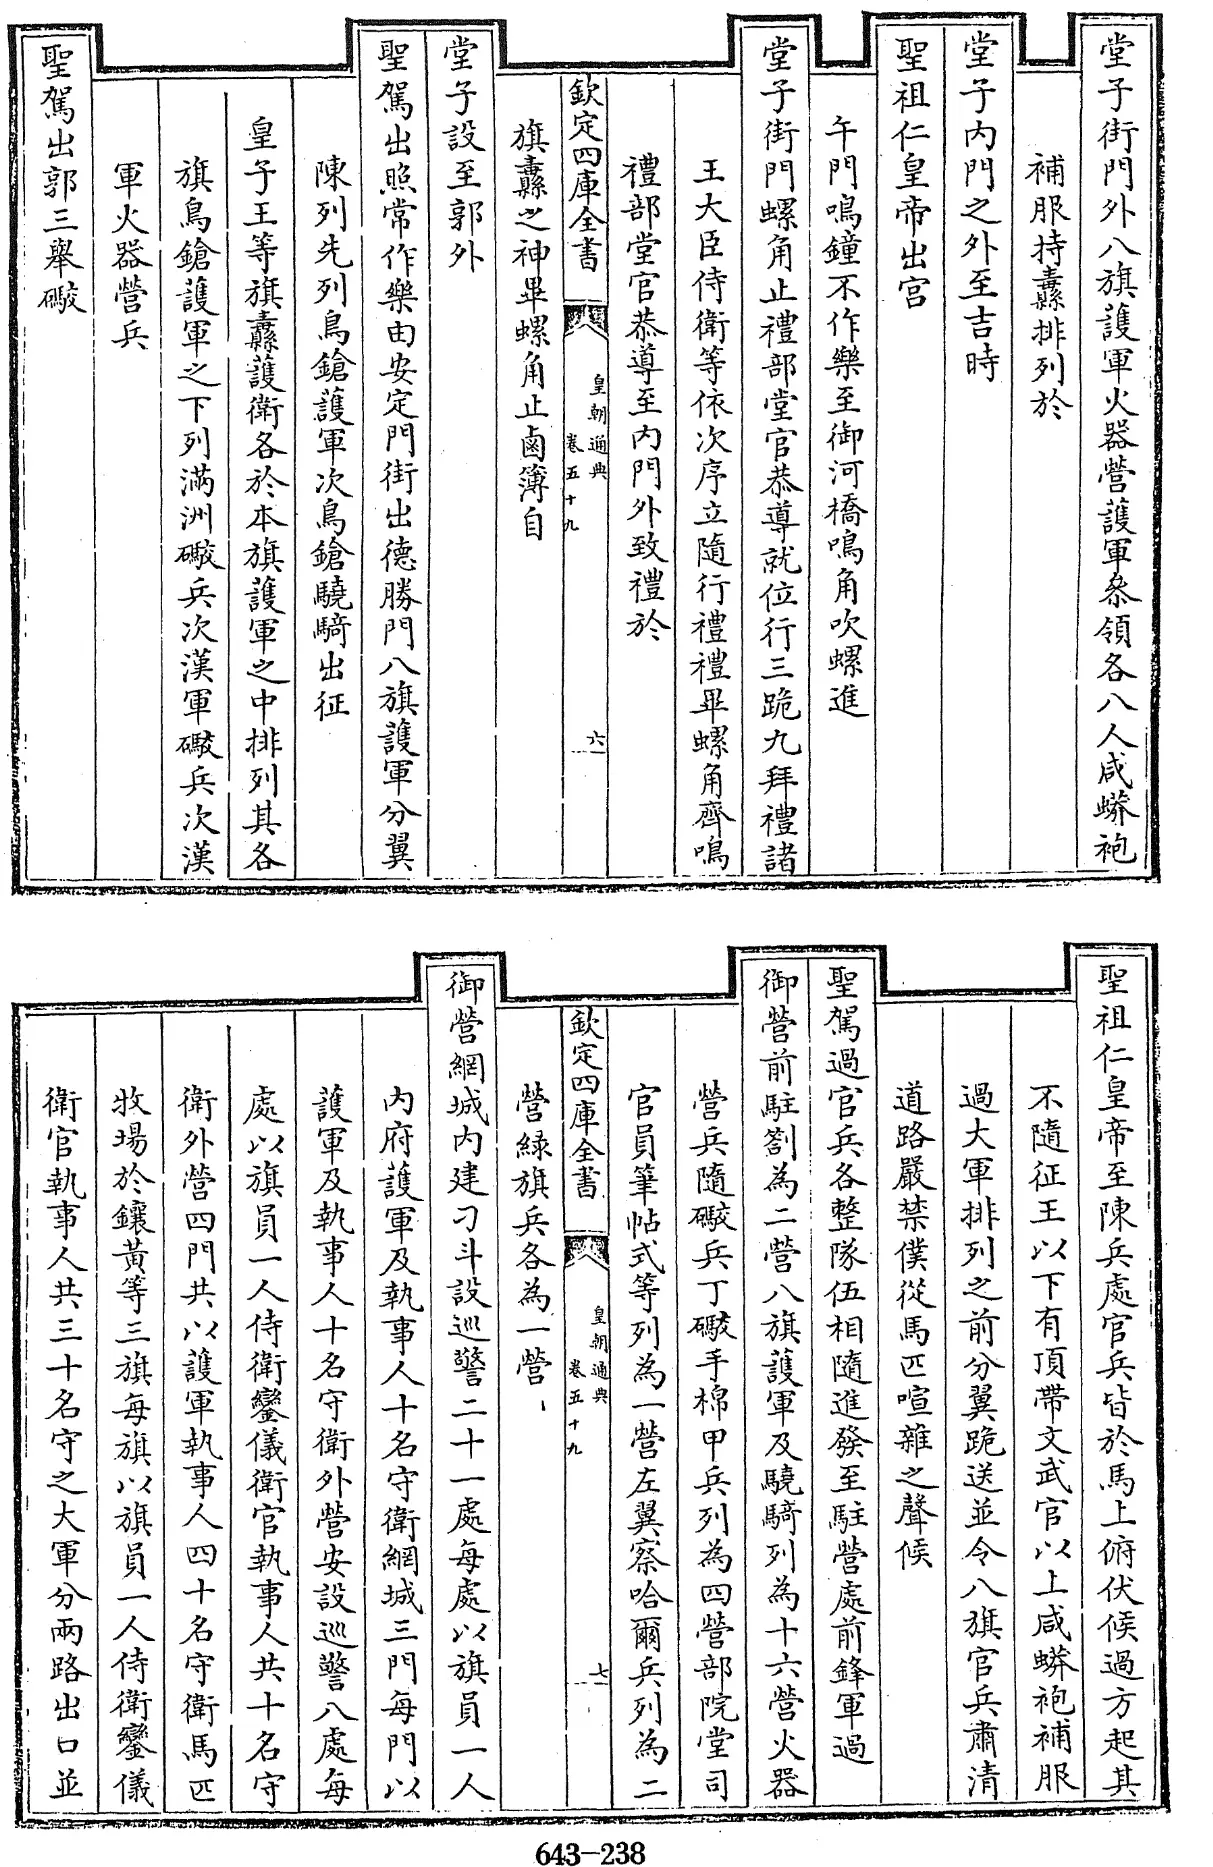 堂子街門外八旗護軍火器營護軍叅領各八人咸蟒袍
補服持纛排列於
堂子內門之外至吉時
聖祖仁皇帝出宮
午門鳴鐘不作樂至御河橋鳴角吹螺進
堂子街門螺角止禮部堂官恭導就位行三跪九拜禮諸
王大臣侍衛等依次序立隨行禮禮畢螺角齊鳴
禮部堂官恭導至內門外致禮於
欽定四庫全書
皇朝通典
卷五十九
六
旗纛之神畢螺角止鹵簿自
堂子設至郭外
聖駕出照常作樂由安定門街出德勝門八旗護軍分翼
陳列先列鳥鎗護軍次鳥鎗驍騎出征
皇子王等旗纛護衛各於本旗護軍之中排列其各
旗鳥鎗護軍之下列滿洲礮兵次漢軍礮兵次漢
軍火器營兵
聖駕出郭三舉礮
聖祖仁皇帝至陳兵處官兵皆於馬上俯伏候過方起其
不隨征王以下有頂帶文武官以上咸蟒袍補服
過大軍排列之前分翼跪送並令八旗官兵肅清
道路嚴禁僕從馬匹喧雜之聲候
聖駕過官兵各整隊伍相隨進發至駐營處前鋒軍過
御營前駐劄為二營八旗護軍及驍騎列為十六營火器
營兵隨礮兵丁礮手棉甲兵列為四營部院堂司
官員筆帖式等列為一營左翼察哈爾兵列為二
欽定四庫全書
皇朝通典
卷五十九
七
營綠旗兵各為一營
御營網城內建刁斗設巡警二十一處每處以旗員一人
內府護軍及執事人十名守衛網城三門每門以
護軍及執事人十名守衛外營安設巡警八處每
處以旗員一人侍衛鑾儀衛官執事人共十名守
衛外營四門共以護軍執事人四十名守衛馬匹
牧場於鑲黃等三旗每旗以旗員一人侍衛鑾儀
衛官執事人共三十名守之大軍分兩路出口並
643-238